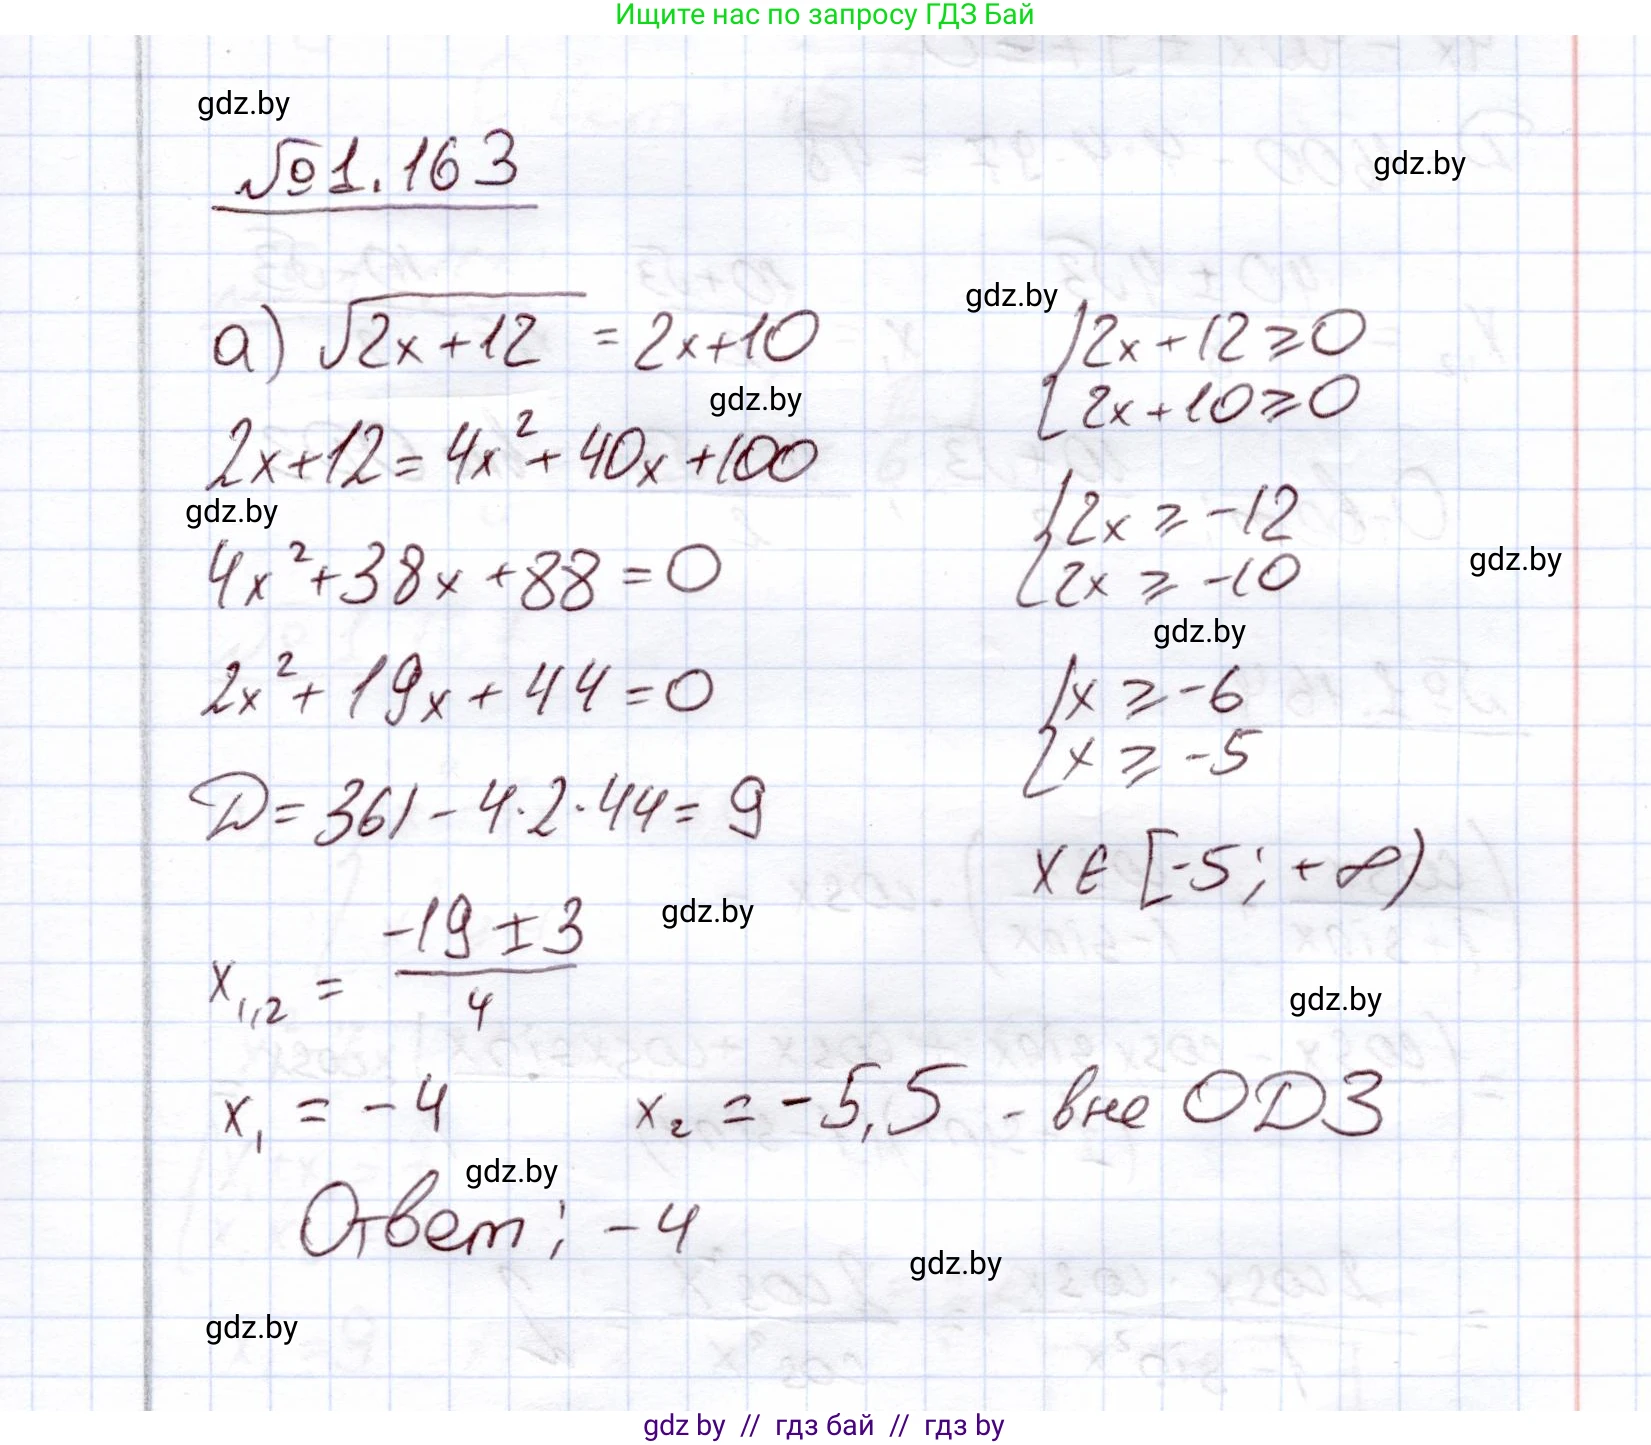 Ищите нас по запросу ГДЗ Бай
gdz.by
№1.163
gdz.by
а) √(2x+12) = 2x+10
gdz.by
{2x+12⩾0
{2x+10⩾0
gdz.by
2x+12=4x²+40x+100
gdz.by
{2x ⩾ -12
{2x ⩾ -10
gdz.by
4x²+38x+88=0
gdz.by
2x²+19x+44=0
{x ⩾ -6
{x ⩾ -5
D=361-4·2·44=9
x∈[-5; +∞)
gdz.by
x₁,₂ = (-19±3)/4
gdz.by
x₁ = -4 x₂ = -5,5 - вне ОДЗ
gdz.by
Ответ; -4
gdz.by
gdz.by
gdz by // гдз бай // гдз by